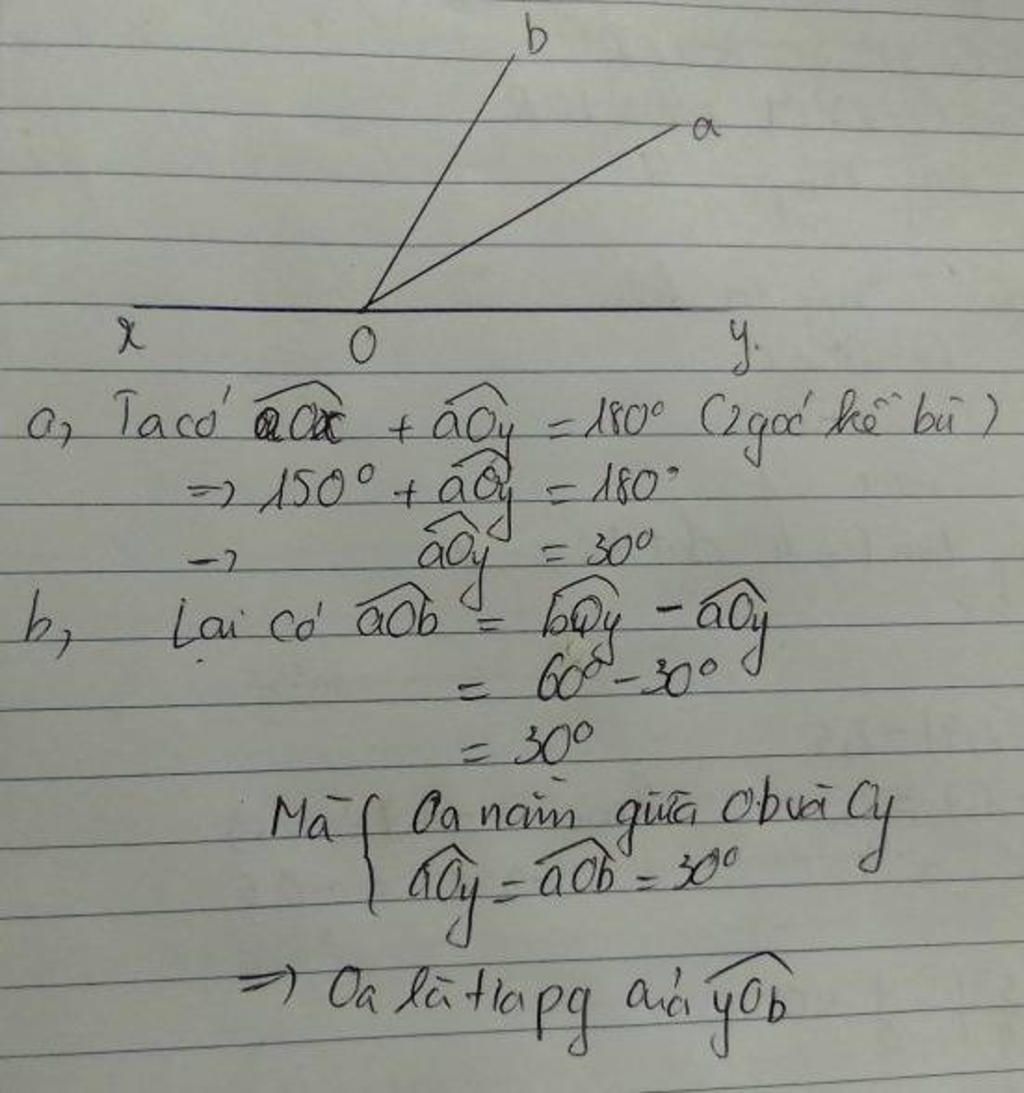 b
a
x O y.
a, Ta có aOx + aOy = 180° (2 góc kề bù)
=> 150° + aOy = 180°
-> aOy = 30°
b, Lại có aOb = bOy - aOy
= 60° - 30°
= 30°
Mà { Oa nằm giữa Ob và Oy
aOy = aOb = 30°
=> Oa là tia pg của yOb